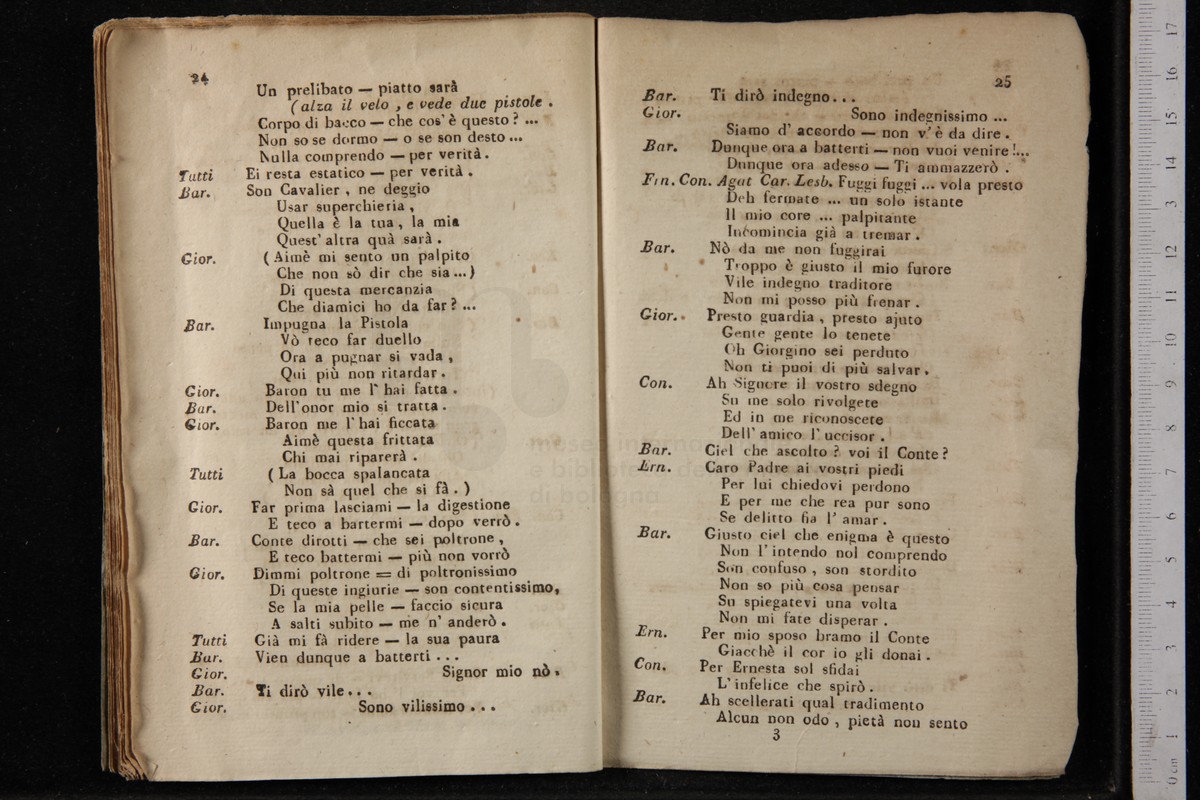 24
Un prelibato — piatto sarà
(alza il velo , e vede due pistole .
Corpo di bacco — che cos' è questo ? ...
Non so se dormo — o se son desto ...
Nulla comprendo — per verità .
Tutti Ei resta estatico — per verità .
Bar. Son Cavalier , ne deggio
Usar superchieria ,
Quella è la tua , la mia
Quest' altra quà sarà .
Gior. ( Aimè mi sento un palpito
Che non sò dir che sia ... )
Di questa mercanzia
Che diamici ho da far ? ...
Bar. Impugna la Pistola
Vò teco far duello
Ora a pugnar si vada ,
Qui più non ritardar .
Gior. Baron tu me l' hai fatta .
Bar. Dell'onor mio si tratta .
Gior. Baron me l' hai ficcata
Aimè questa frittata
Chi mai riparerà .
Tutti ( La bocca spalancata
Non sà quel che si fà . )
Gior. Far prima lasciami — la digestione
E teco a bartermi — dopo verrò .
Bar. Conte dirotti — che sei poltrone ,
E teco battermi — più non vorrò
Gior. Dimmi poltrone = di poltronissimo
Di queste ingiurie — son contentissimo,
Se la mia pelle — faccio sicura
A salti subito — me n' anderò .
Tutti Già mi fà ridere — la sua paura
Bar. Vien dunque a batterti . . .
Gior. Signor mio nò .
Bar. Ti dirò vile . . .
Gior. Sono vilissimo . . .
25
Bar. Ti dirò indegno . . .
Gior. Sono indegnissimo ...
Siamo d' accordo — non v' è da dire .
Bar. Dunque ora a batterti — non vuoi venire !...
Dunque ora adesso — Ti ammazzerò .
Ern. Con. Agat Car. Lesb. Fuggi fuggi ... vola presto
Deh fermate ... un solo istante
Il mio core ... palpitante
Incomincia già a tremar .
Bar. Nò da me non fuggirai
Troppo è giusto il mio furore
Vile indegno traditore
Non mi posso più frenar .
Gior. Presto guardia , presto ajuto
Gente gente lo tenete
Oh Giorgino sei perduto
Non ti puoi di più salvar .
Con. Ah Signore il vostro sdegno
Su me solo rivolgete
Ed in me riconoscete
Dell' amico l' uccisor .
Bar. Ciel che ascolto ? voi il Conte ?
Ern. Caro Padre ai vostri piedi
Per lui chiedovi perdono
E per me che rea pur sono
Se delitto fia l' amar .
Bar. Giusto ciel che enigma è questo
Non l' intendo nol comprendo
Son confuso , son stordito
Non so più cosa pensar
Su spiegatevi una volta
Non mi fate disperar .
Ern. Per mio sposo bramo il Conte
Giacchè il cor io gli donai .
Con. Per Ernesta sol sfidai
L' infelice che spirò .
Bar. Ah scellerati qual tradimento
Alcun non odo , pietà non sento
3